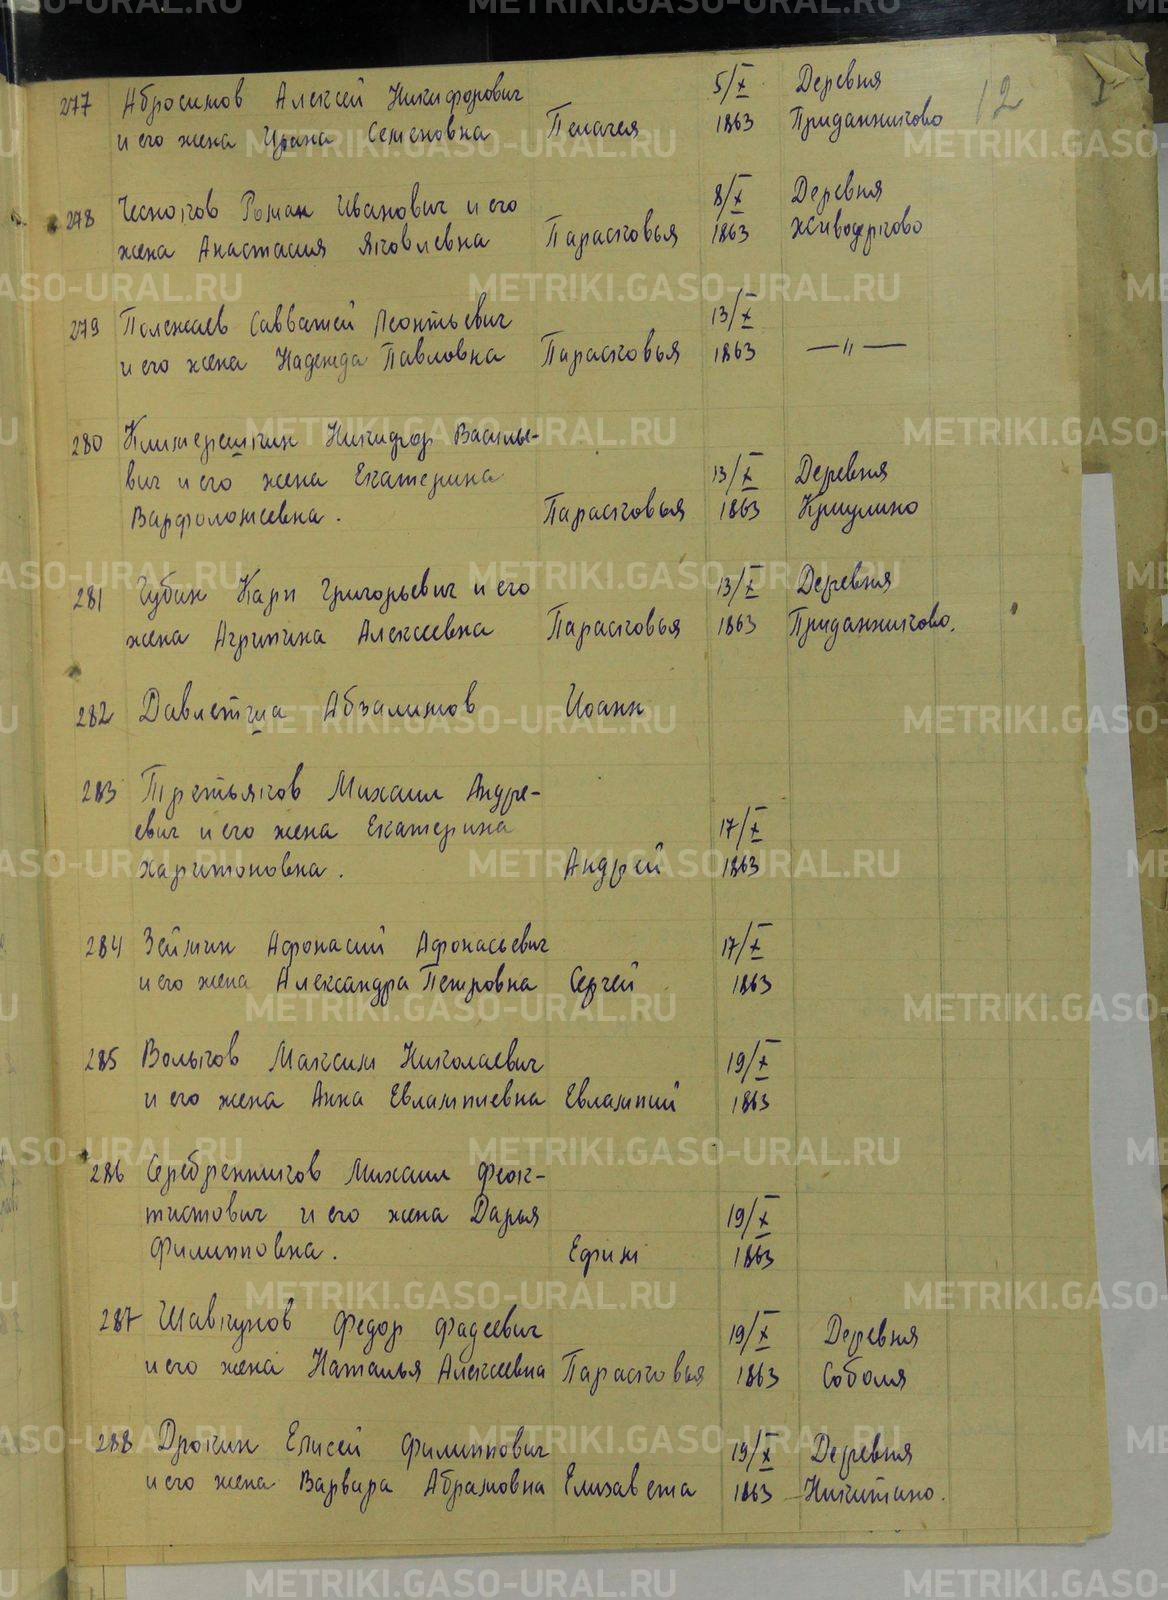 12
277 Абросимов Алексей Никифорович 5/X Деревня
и его жена Ирина Семеновна Пелагея 1863 Приданниково
278 Чесноков Роман Иванович и его 8/X Деревня
жена Анастасия Яковлевна Парасковья 1863 Живодерково
279 Полежаев Савватей Леонтьевич 13/X
и его жена Надежда Павловна Парасковья 1863 —"—
280 Клитерешкин Никифор Василье-
вич и его жена Екатерина 13/X Деревня
Варфоломеевна. Парасковья 1863 Криулино
281 Чубин Карп Григорьевич и его 13/X Деревня
жена Агрипина Алексеевна Парасковья 1863 Приданниково.
282 Давлетша Абзалимов Иоанн
283 Третьяков Михаил Андре-
евич и его жена Екатерина 17/X
Харитоновна. Андрей 1863
284 Зеймин Афонасий Афонасьевич 17/X
и его жена Александра Петровна Сергей 1863
285 Волков Максим Николаевич 19/X
и его жена Анна Евлампиевна Евлампий 1863
286 Серебренников Михаил Феок-
тистович и его жена Дарья 19/X
Филипповна. Ефим 1863
287 Шавкунов Федор Фадеевич 19/X Деревня
и его жена Наталья Алексеевна Парасковья 1863 Соболя
288 Дрокин Елисей Филиппович 19/X Деревня
и его жена Варвара Абрамовна Елизавета 1863 Никитино.
METRIKI.GASO-URAL.RU